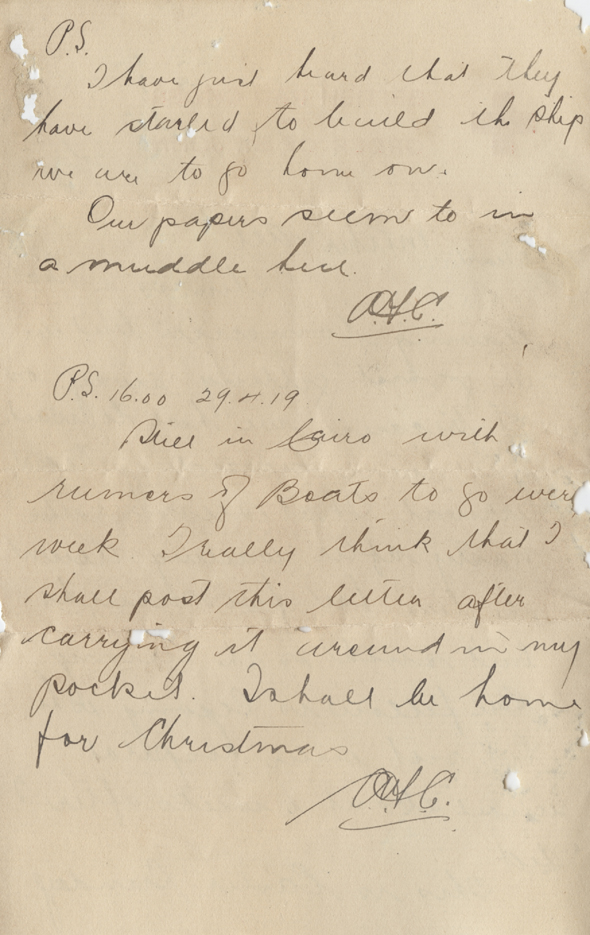 P.S.
I have just heard that they
have started to build the ship
we are to go home on.
Our papers seem to in
a muddle here.
P.S. 16.00 29.4.19
Still in Cairo with
rumors of Boats to go every
week. I really think that I
shall post this letter after
carrying it around in my
pocket. I shall be home
for Christmas